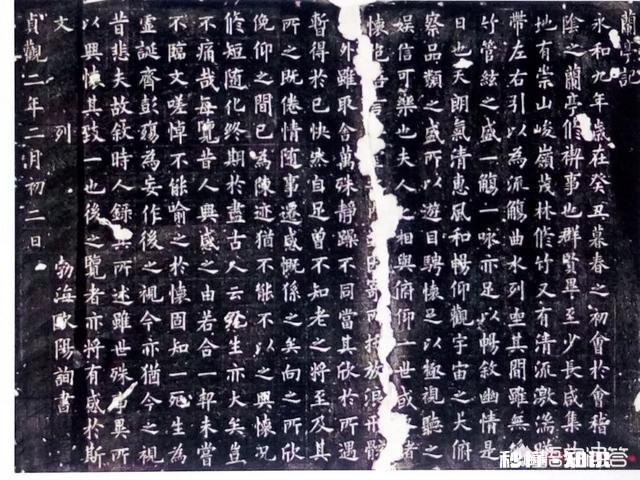 蘭亭記
永和九年歲在癸丑暮春之初會於會稽
陰之蘭亭脩禊事也群賢畢至少長咸集
地有崇山峻嶺茂林脩竹又有清流激湍
帶左右引以為流觴曲水列坐其間雖無
竹管絃之盛一觴一咏亦足以暢敘幽情是
日也天朗氣清惠風和暢仰觀宇宙之大俯
察品類之盛所以遊目騁懷足以極視聽之
娛信可樂也夫人之相與俯仰一世或諸
懷言寄所放浪形骸
外雖取舍萬殊靜躁不同當其欣於所遇
暫得於已快然自足曾不知老之將至及其
所之既倦情隨事遷感慨係之矣向之所欣
俛仰之間已為陳迹猶不能不以之興懷況
脩短隨化終期於盡古人云死生亦大矣豈
不痛哉每覽昔人興感之由若合一契未嘗
不臨文嗟悼不能喻之於懷固知一死生為
虛誕齊彭殤為妄作後之視今亦猶今之視
昔悲夫故敘時人錄其所述雖世殊事異所
以興懷其致一也後之覽者亦將有感於斯
文 列 勃海歐陽詢書
貞觀二年二月初二日